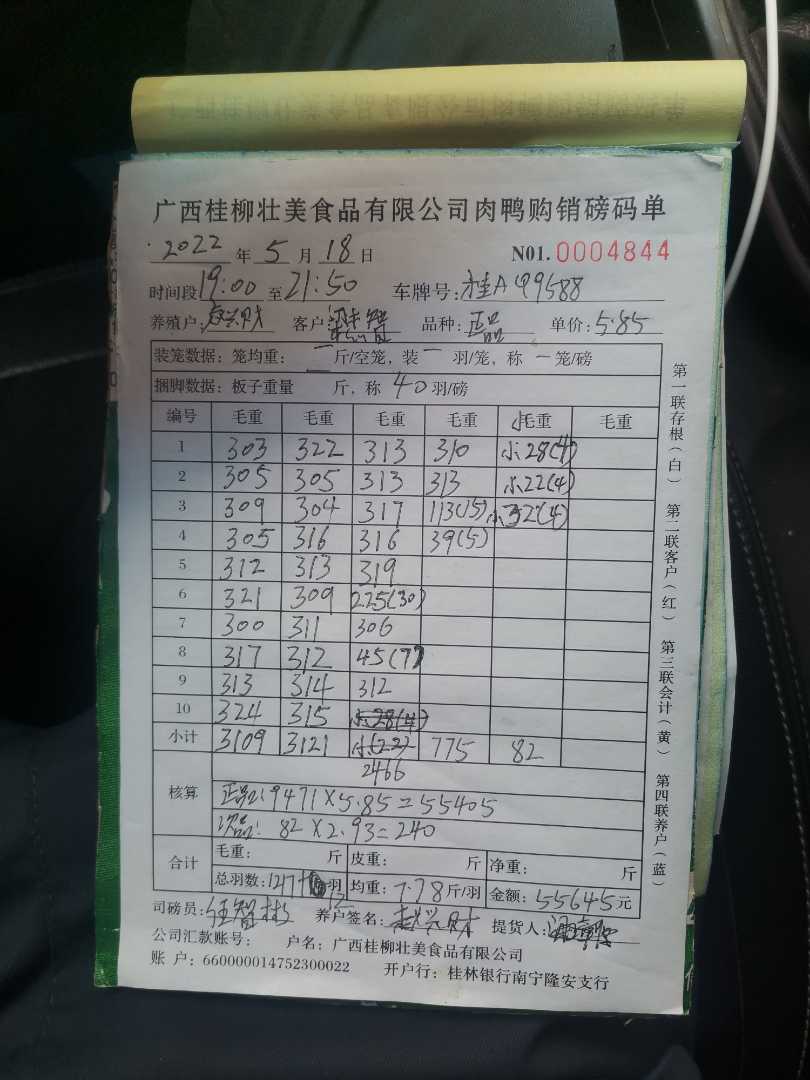 广西桂柳壮美食品有限公司肉鸭购销磅码单
2022 年 5 月 18 日 N01. 0004844
时间段 19:00 至 21:50 车牌号: 桂A Q9588
养殖户: 赵兴财 客户: 品种: 正品 单价: 5.85
装笼数据: 笼均重: 一 斤/空笼, 装 一 羽/笼, 称 一 笼/磅
捆脚数据: 板子重量 斤, 称 40 羽/磅
编号 毛重 毛重 毛重 毛重 小毛重 毛重
1 303 322 313 310 小28(4)
2 305 305 313 313 小22(4)
3 309 304 317 113(15) 小32(4)
4 305 316 316 39(5)
5 312 313 319
6 321 309 225(30)
7 300 311 306
8 317 312 45(7)
9 313 314 312
10 324 315 小28(4)
小计 3109 3121 小(22) 775 82
2466
核算 正品: 9471×5.85=55405
次品: 82×2.93=240
合计 毛重: 斤 皮重: 斤 净重: 斤
总羽数: 1217+12 羽 均重: 7.78 斤/羽 金额: 55645 元
司磅员: 养户签名: 赵兴财 提货人:
公司汇款账号: 户名: 广西桂柳壮美食品有限公司
账 户: 660000014752300022 开户行: 桂林银行南宁隆安支行
第一联存根(白) 第二联客户(红) 第三联会计(黄) 第四联养户(蓝)